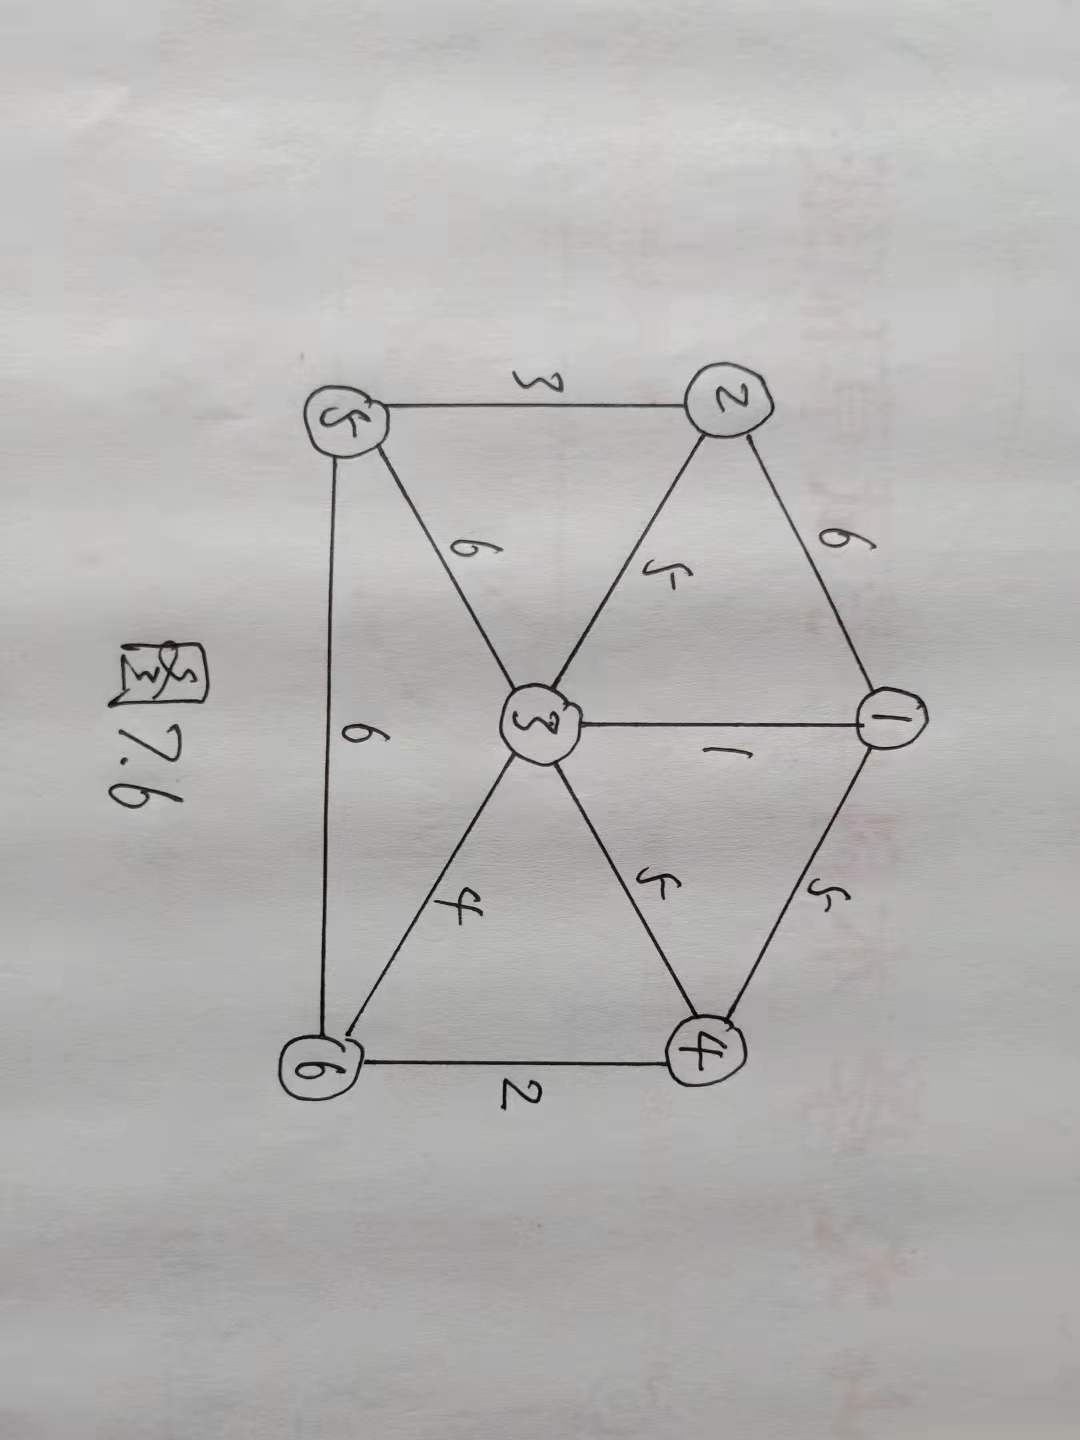 1
6
5
2
1
4
5
5
3
3
2
6
4
5
6
6
图7.6